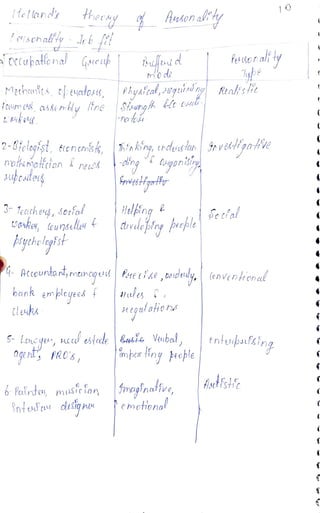 10
Holland's theory of Personality
Personality - Job fit
Occupational Group
Preferred mode
Personality Type
Mechanics, operators,
farmers, assembly line
workers
Physical,
Strength
nature
Realistic
2- Biologist, economists,
mathematician & news
Thinking,
& organizing
Investigative
3- Teachers, social
worker, counsellor &
psychologist
Helping &
developing people
Social
4- Accountant, managers
bank employees &
Clerks
Precise, orderly,
rules &
regulations
Conventional
5- Lawyer, real estate
agent, PRO's,
Verbal,
people
enterprising
6- Painter, musician,
interior designer
Imaginative,
emotional
Artistic